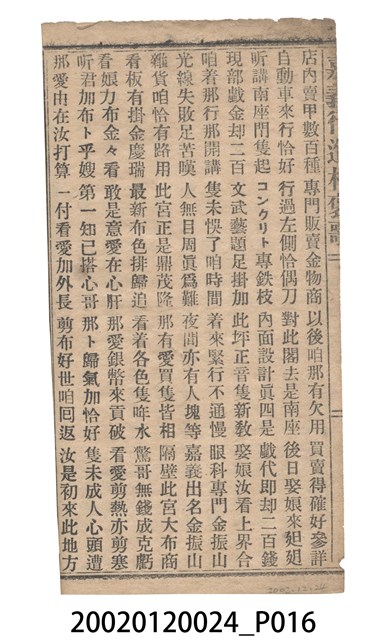 店內賣甲數百種 專門販賣金物商 以後咱那有欠用 買賣得確好參詳
自動車來行恰好 行過左側恰偶刀 對此閣去是南座 後日娶娘來𨑨迌
听講南座門隻起 コンクリト專鉄枝 內面設計眞四是 戲代即却二百錢
現部戲金却二百 文武藝題足掛加 此坪正音隻新敎 娶娘汝看上界合
咱着那行那開講 隻未悞了咱時間 着來緊行不通慢 眼科專門金振山
光線失敗足苦嘆 人無目周眞爲難 夜間亦有人塊等 嘉義出名金振山
雜貨咱恰有路用 此宮正是鼎茂隆 那有愛買隻皆相 隔壁此宮大布商
看板有掛金慶瑞 最新布色排歸追 看着各色隻哖水 驚哥無錢成克虧
看娘力布金々看 敢是意愛在心肝 那愛銀幣來貢破 看愛剪熱亦剪寒
听君加布ト乎嫂 第一知已搭心哥 那ト歸氣加恰好 隻未成人心頭遭
那愛由在汝打算 一付看愛加外長 剪布好世咱囘返 汝是初來此地方
20020120024_P016